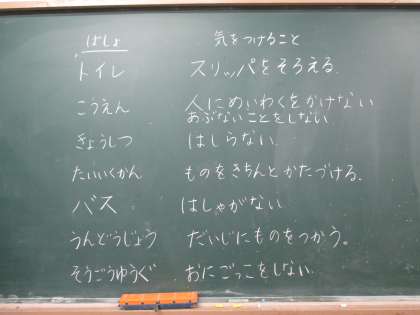 ばしょ 気をつけること
トイレ スリッパをそろえる。
こうえん 人にめいわくをかけない
あぶないことをしない。
きょうしつ はしらない。
たいいくかん ものをきちんとかたづける。
バス はしゃがない
うんどうじょう だいじにものをつかう。
そうごうゆうぐ おにごっこをしない。